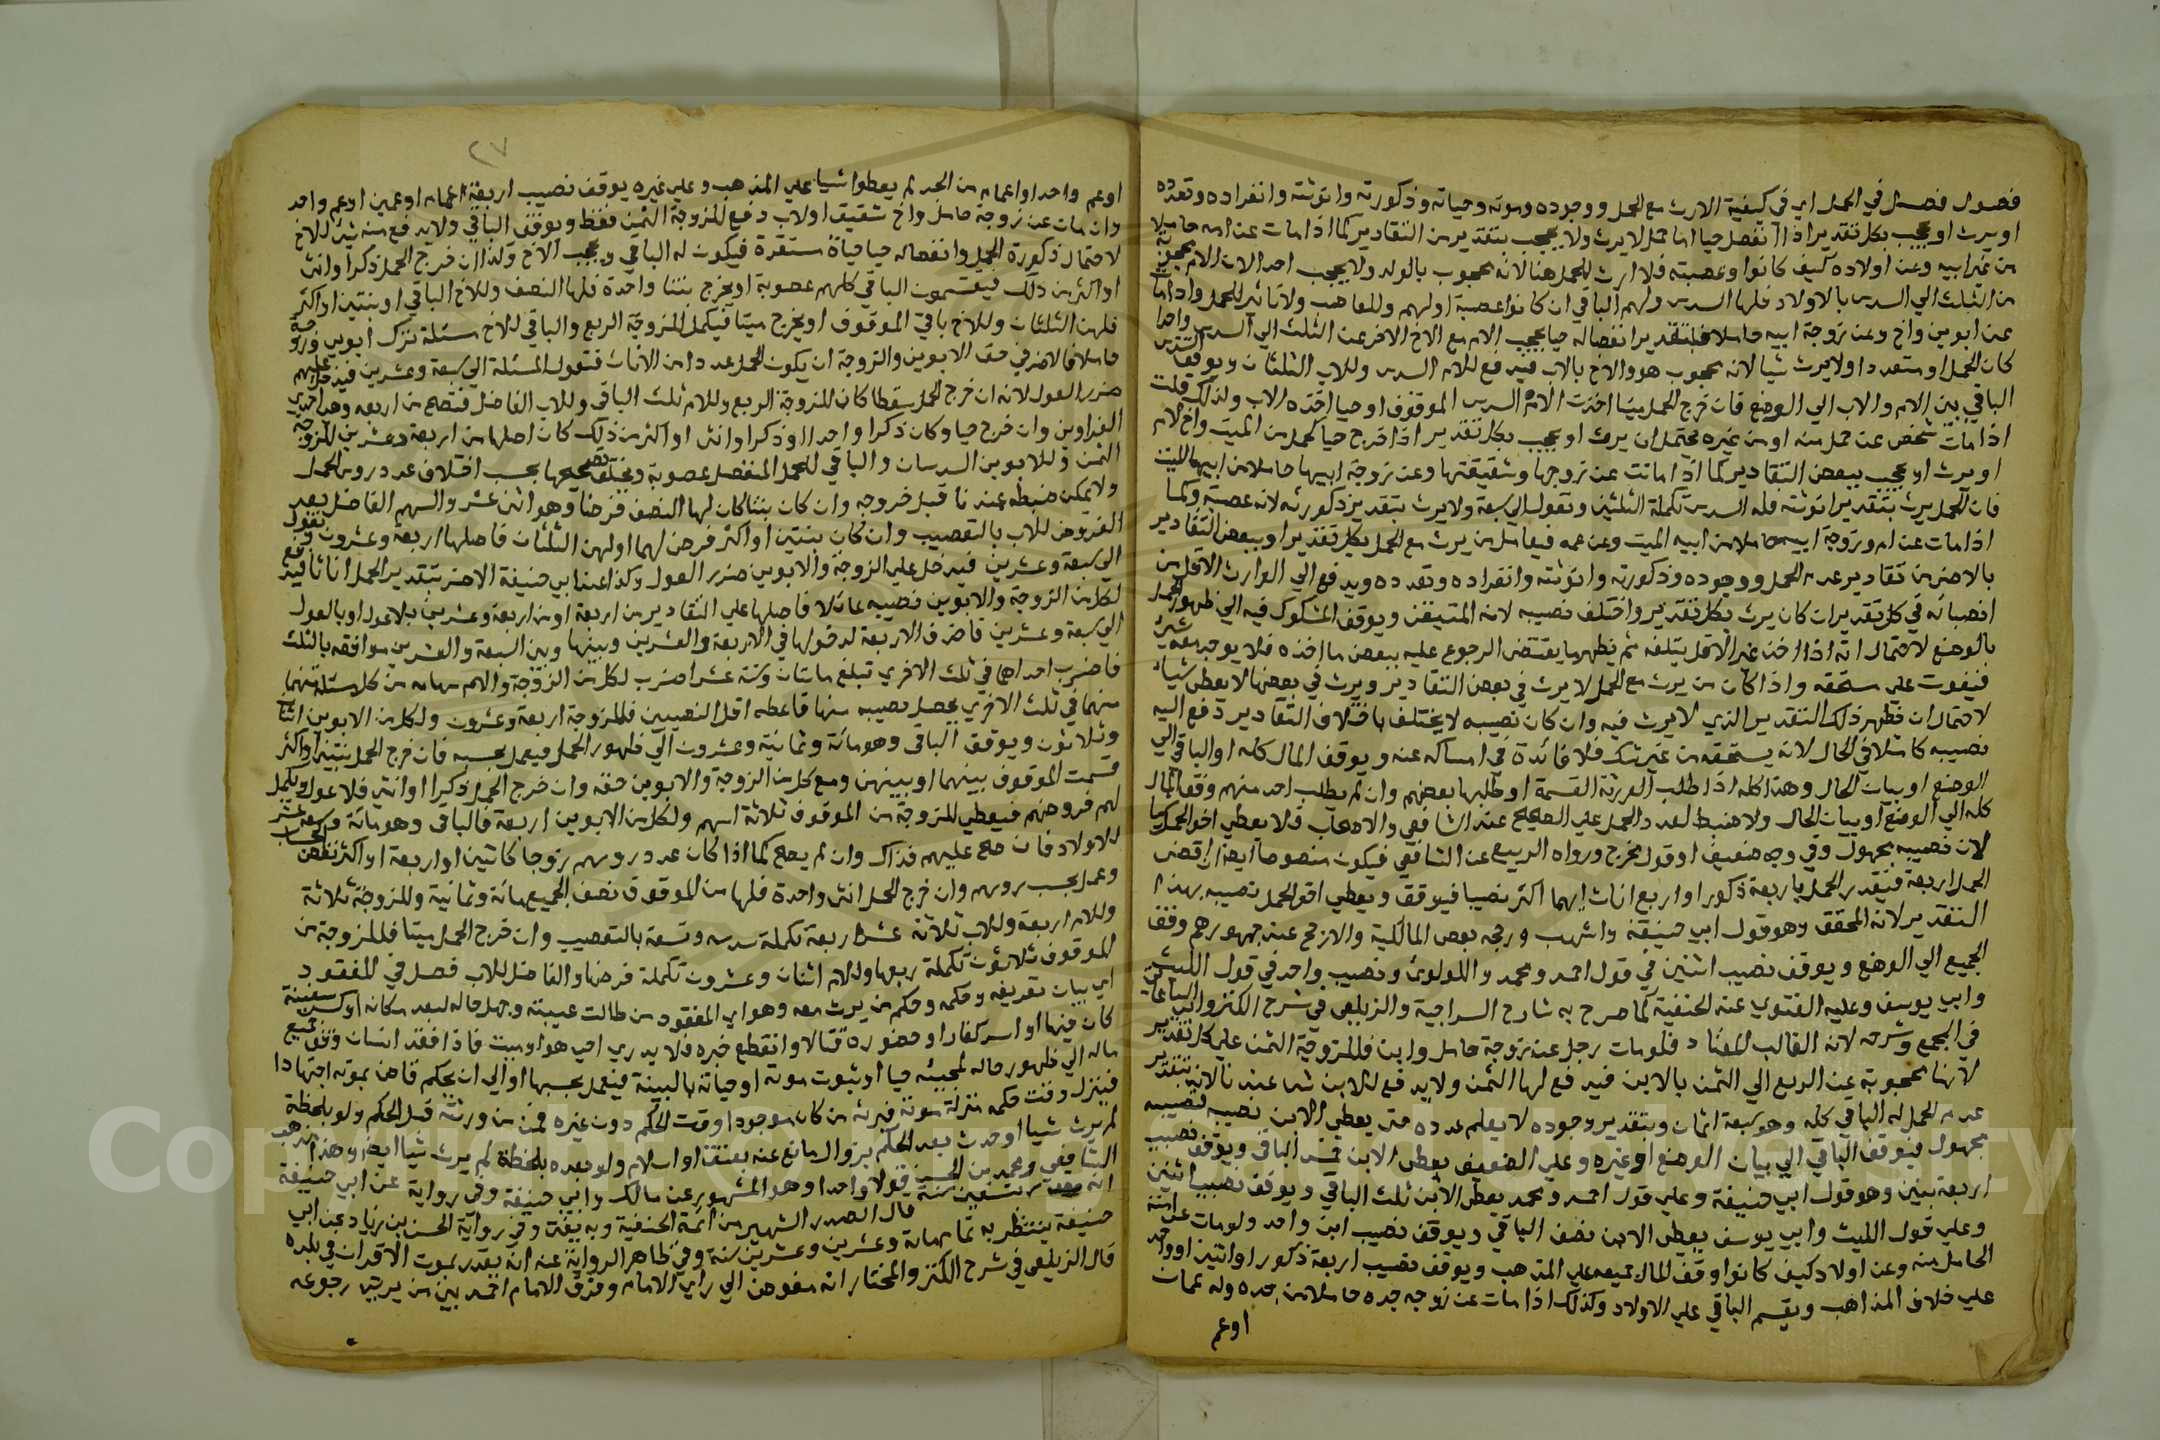 فصول فصل في الحمل اي في كيفية الارث مع الحمل ووجوده وموته وحياته وذكورته وانوثته وانفراده وتعدده
او يرث او يحجب بكل تقدير اذا انفصل حيا اما حمل لا يرث ولا يحجب بتقدير من التقادير كما اذا مات عن امه حاملا
من غير ابيه وعن اولاده كيف كانوا وعصبته فلا ارث للحمل هنا لانه محجوب بالولد ولا يحجب احدا لان الام محجوبة
من الثلث الي السدس بالاولاد فلها السدس ولهم الباقي ان كانوا عصبة اولهم وللعاصب ولا تاثير للحمل واذا مات
عن ابوين واخ وعن زوجة ابيه حاملا فبتقدير انفصاله حيا يحجب الام مع الاخ الاخر عن الثلث الي السدس واحدا
كان الحمل او متعددا ولا يرث شيا لانه محجوب هو والاخ بالاب فيدفع للام السدس وللاب الثلثان ويوقف السدس
الباقي بين الام والاب الي الوضع فان خرج الحمل ميتا اخذت الام السدس الموقوف او حيا اخذه الاب ولذلك قلت
اذا مات شخص عن حمل منه او من غيره يحتمل ان يرث او يحجب بكل تقدير اذا خرج حيا كحمل من الميت واخ لام
او يرث او يحجب ببعض التقادير كما اذا ماتت عن زوجها وشقيقتها وعن زوجة ابيها حاملا من ابيها الميت
فان الحمل يرث بتقدير انوثته فله السدس تكملة الثلثين وتعول الي سبعة ولا يرث بتقدير ذكورته لانه عصبة وكما
اذا مات عن ام وزوجة ابيه حاملا من ابيه الميت وعن عمه فيعامل من يرث مع الحمل بكل تقدير او ببعض التقادير
بالاضر من تقادير عدم الحمل ووجوده وذكورته وانوثته وانفراده وتعدده ويدفع الي الوارث الاقل من
انصبائه في كل تقدير ان كان يرث بكل تقدير واختلف نصيبه لانه المتيقن ويوقف المشكوك فيه الي ظهور الحمل
بالوضع لاحتمال انه اذا اخذ غير الاقل يتلفه ثم يظهر ما يقتضي الرجوع عليه ببعض ما اخذه فلا يوجد معه شئ
فيفوت علي مستحقه واذا كان من يرث مع الحمل لا يرث في بعض التقادير ويرث في بعضها لا يعطي شيا
لاحتمال ان يظهر ذلك التقدير الذي لا يرث فيه وان كان نصيبه لا يختلف باختلاف التقادير دفع اليه
نصيبه كاملا في الحال لانه يستحقه من غير شك فلا فائدة في امساكه عنه ويوقف المال كله او الباقي الي
الوضع او بيان الحال وهذا كله اذا طلب الورثة القسمة او طلبها بعضهم وان لم يطلب احد منهم وقف المال
كله الي الوضع او بيان الحال ولا ضبط لعدد الحمل علي الصحيح عند الشافعي والاصحاب فلا يعطي اخو الحمل شيا
لان نصيبه مجهول وفي وجه ضعيف او قول مخرج ورواه الربيع عن الشافعي فيكون منصوصا ايضا اقصي
الحمل اربعة فيقدر الحمل باربعة ذكور او اربع اناث ايهما اكثر نصيبا فيوقف ويعطي اخو الحمل نصيبه بهذا
التقدير لانه المحقق وهو قول ابي حنيفة واشهب ورجحه بعض المالكية والارجح عند جمهورهم وقف
الجميع الي الوضع ويوقف نصيب اثنين في قول احمد ومحمد واللولوي ونصيب واحد في قول الليث
وابي يوسف وعليه الفتوي عند الحنفية كما صرح به شارح السراجية والزيلعي في شرح الكنز وابن الساعاتي
في المجمع وشرحه لانه الغالب المعتاد فلو مات رجل عن زوجة حامل وابن فللزوجة الثمن علي كل تقدير
لانها محجوبة عن الربع الي الثمن بالابن فيدفع لها الثمن ولا يدفع للابن شيا عندنا لانه بتقدير
عدم الحمل له الباقي كله وهو سبعة اثمان وبتقدير وجوده لا يعلم عدده حتي يعطي الابن نصيبه فنصيبه
مجهول فيوقف الباقي الي بيان الوضع او غيره وعلي الضعيف يعطي الابن خمس الباقي ويوقف نصيب
اربعة بنين وهو قول ابي حنيفة وعلي قول احمد ومحمد يعطي الابن ثلث الباقي ويوقف نصيب اثنين
وعلي قول الليث وابي يوسف يعطي الابن نصف الباقي ويوقف نصيب ابن واحد ولو مات عن امته
الحامل منه وعن اولاد كيف كانوا وقف المال جميعه علي المذهب ويوقف نصيب اربعة ذكور او اثنين او واحد
علي خلاف المذاهب ويقسم الباقي علي الاولاد وكذلك اذا مات عن زوجه جده حاملا من جده وله عمات
او عم
٢٧
او عم واحد او اعمام من الجد لم يعطوا شيا علي المذهب وعلي غيره يوقف نصيب اربعة اعمام او عمين او عم واحد
وان مات عن زوجة حامل واخ شقيق او لاب دفع للزوجة الثمن فقط ويوقف الباقي ولا يدفع منه شئ للاخ
لاحتمال ذكورة الحمل وانفصاله حيا حياة مستقرة فيكون له الباقي ويحجب الاخ ولذا ان خرج الحمل ذكرا وانثي
او اكثر من ذلك فيقتسمون الباقي كلهم عصوبة او يخرج بنتا واحدة فلها النصف وللاخ الباقي او بنتين او اكثر
فلهن الثلثان وللاخ باقي الموقوف او يخرج ميتا فيكمل للزوجة الربع والباقي للاخ مسئلة ترك ابوين وزوجة
حاملا فالاضر في حق الابوين والزوجة ان يكون الحمل عددا من الاناث فتعول المسئلة الي سبعة وعشرين فيدخل عليهم
ضرر العول لانه ان خرج الحمل سقطا كان للزوجة الربع وللام ثلث الباقي وللاب الفاضل فتصح من اربعه وهي احدي
الغراوين وان خرج حيا وكان ذكرا واحدا او ذكرا وانثي او اكثر من ذلك كان اصلها من اربعة وعشرين للزوجة
الثمن وللابوين السدسان والباقي للحمل المنفصل عصوبة ويختلف تصحيحها بحسب اختلاف عدد رؤس الحمل
ولا يمكن ضبطه عندنا قبل خروجه وان كان بنتا كان لها النصف فرضا وهو اثني عشر والسهم الفاضل بعد
الفروض للاب بالتعصيب وان كان بنتين او اكثر فرض لهما او لهن الثلثان فاصلها اربعة وعشرون وتعول
الي سبعة وعشرين فيدخل علي الزوجة والابوين ضرر العول وكذا عند ابي حنيفة الاضر بتقدير الحمل اناثا فيدفع
لكل من الزوجة والابوين نصيبه عائلا فاصلها علي التقادير من اربعة او من اربعة وعشرين بلا عول او بالعول
الي سبعة وعشرين فاضرب الاربعة لدخولها في الاربعة والعشرين وبينها وبين السبعة والعشرين موافقه بالثلث
فاضرب احداها في ثلث الاخري تبلغ مائتان وستة عشر اضرب لكل من الزوجة والام سهامه من كل مسئلة منهما
منهما في ثلث الاخري يحصل نصيبه منها فاعطه اقل النصيبين فللزوجة اربعة وعشرون ولكل من الابوين اثنان
وثلاثون ويوقف الباقي وهو مائة وثمانية وعشرون الي ظهور الحمل فيعمل بحسبه فان خرج الحمل بنتين او اكثر
قسمت الموقوف بينهما او بينهن ومع كل من الزوجة والابوين حقه وان خرج الحمل ذكرا او انثي فلا عول ويكمل
لهم فروضهم فيعطي للزوجة من الموقوف ثلاثة اسهم ولكل من الابوين اربعة فالباقي وهو مائة وسبعة عشر
للاولاد فان صح عليهم فذاك وان لم يصح كما اذا كان عدد روسهم زوجا كاثنين او اربعة او اكثر فصحح الحساب
وعمل بحسب روسهم وان خرج الحمل انثي واحدة فلها من الموقوف نصف الجميع مائة وثمانية وللزوجة ثلاثة
وللام اربعة وللاب ثلاثة عشر اربعة تكملة سدسه وتسعة بالتعصيب وان خرج الحمل ميتا فللزوجة من
الموقوف ثلاثون تكملة ربعها وللام اثنان وعشرون تكملة فرضها والفاضل للاب فصل في المفقود
اي بيان تعريفه وحكمه وحكم من يرث معه وهو اي المفقود من طالت غيبته وجهل حاله لبعد مكانه او كسر سفينة
كان فيها او اسر كفار او حضوره قتالا وانقطع خبره فلا يدري احي هو او ميت فاذا فقد انسان وقف جميع
ماله الي ظهور حاله لمجيئه حيا او ثبوت موته او حياته بالبينة فيعمل بحسبها او الي ان يحكم قاض بموته اجتهادا
فينزل وقت حكمه منزلة موته فيرثه من كان موجودا وقت الحكم دون غيره فمن من ورثته قبل الحكم ولو بلحظة
لم يرث شيا او حدث بعد الحكم بزوال مانع عنه بعتق او اسلام ولو بعده بلحظة لم يرث شيا ايضا وهذا مذهب
الشافعي ومحمد بن الحسن قولا واحدا وهو المشهور عن مالك وابي حنيفة وفي رواية عن ابي حنيفة
انه يقدر بتسعين سنة قال الصدر الشهير من ائمة الحنفية وبه يفتي وفي رواية الحسن بن زياد عن ابي
حنيفة ينتظر به تمام مائة وعشرين سنة وفي ظاهر الرواية عنه انه يقدر بموت الاقران في بلده
قال الزيلعي في شرح الكنز والمختار انه مفوض الي راي الامام وفرق الامام احمد بين من يرتجي رجوعه